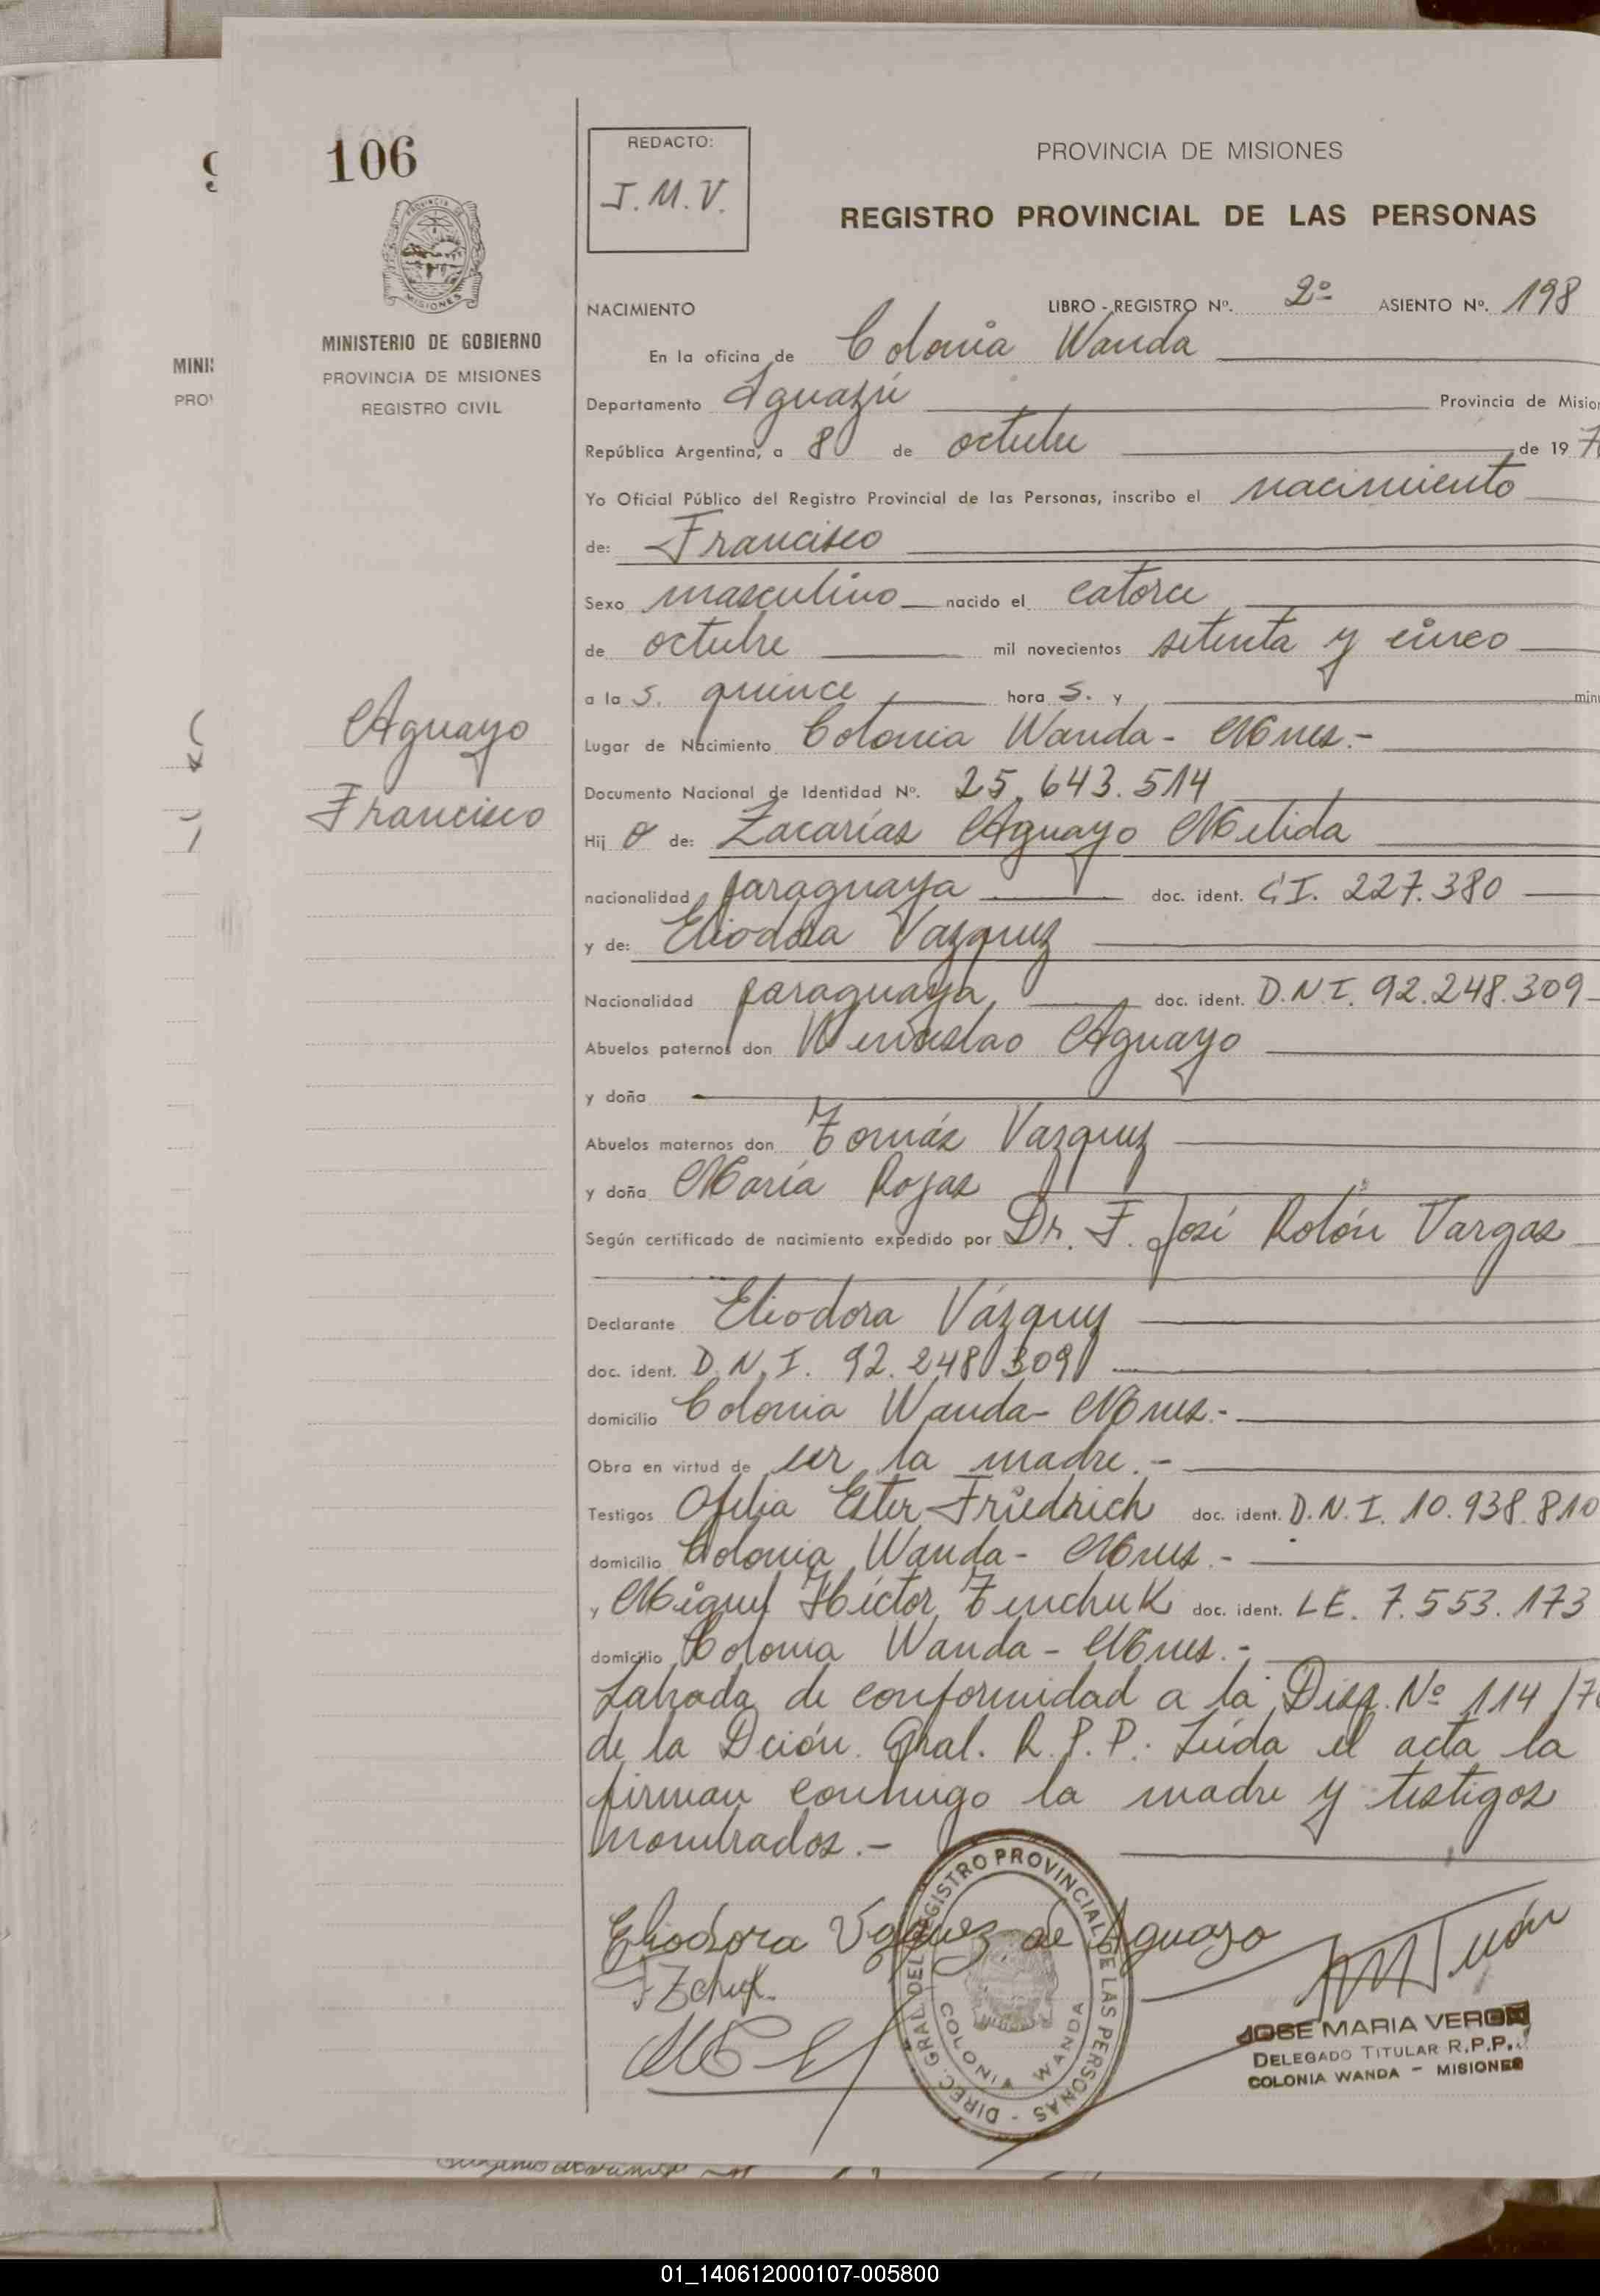 106
REDACTO:
J.M.V.
PROVINCIA DE MISIONES
REGISTRO PROVINCIAL DE LAS PERSONAS
MINISTERIO DE GOBIERNO
PROVINCIA DE MISIONES
REGISTRO CIVIL
MINI
PRO
NACIMIENTO LIBRO - REGISTRO Nº. 2º ASIENTO Nº. 198
En la oficina de Colonia Wanda
Departamento Iguazú Provincia de Mision
República Argentina, a 8 de octubre de 197
Yo Oficial Público del Registro Provincial de las Personas, inscribo el nacimiento
de: Francisco
Sexo masculino nacido el catorce
de octubre mil novecientos setenta y cinco
a la s. quince hora s. y min
Aguayo
Francisco
Lugar de Nacimiento Colonia Wanda - Mnes.-
Documento Nacional de Identidad Nº. 25.643.514
Hij o de: Zacarías Aguayo Melida
nacionalidad paraguaya doc. ident. C.I. 227.380
y de: Eliodora Vazquez
Nacionalidad paraguaya doc. ident. D.N.I. 92.248.309
Abuelos paternos don Wenceslao Aguayo
y doña
Abuelos maternos don Tomás Vazquez
y doña María Rojas
Según certificado de nacimiento expedido por Dr. F. José Rolón Vargas
Declarante Eliodora Vázquez
doc. ident. D.N.I. 92.248.309
domicilio Colonia Wanda - Mnes.-
Obra en virtud de ser la madre.-
Testigos Ofelia Ester Friedrich doc. ident. D.N.I. 10.938.810
domicilio Colonia Wanda - Mnes.-
y Miguel Héctor Zenchuk doc. ident. LE. 7.553.173
domicilio Colonia Wanda - Mnes.-
Labrada de conformidad a la Disp. Nº 114/7
de la Dción. Gral. R.P.P. Leída el acta la
firman conmigo la madre y testigos
nombrados.-
Eliodora Vazquez de Aguayo
DIREC. GRAL. DEL REGISTRO PROVINCIAL DE LAS PERSONAS
COLONIA WANDA
JOSE MARIA VERON
DELEGADO TITULAR R.P.P.
COLONIA WANDA - MISIONES
01_140612000107-005800